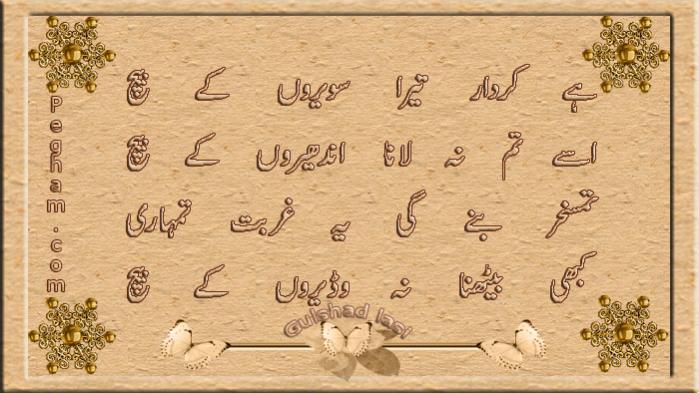 ہے کردار تیرا سویروں کے بیچ
اسے تم نہ لانا اندھیروں کے بیچ
تمسخر بنے گی یہ غربت تمہاری
کبھی بیٹھنا نہ وڈیروں کے بیچ
Pegham.com
Gulshad lasi